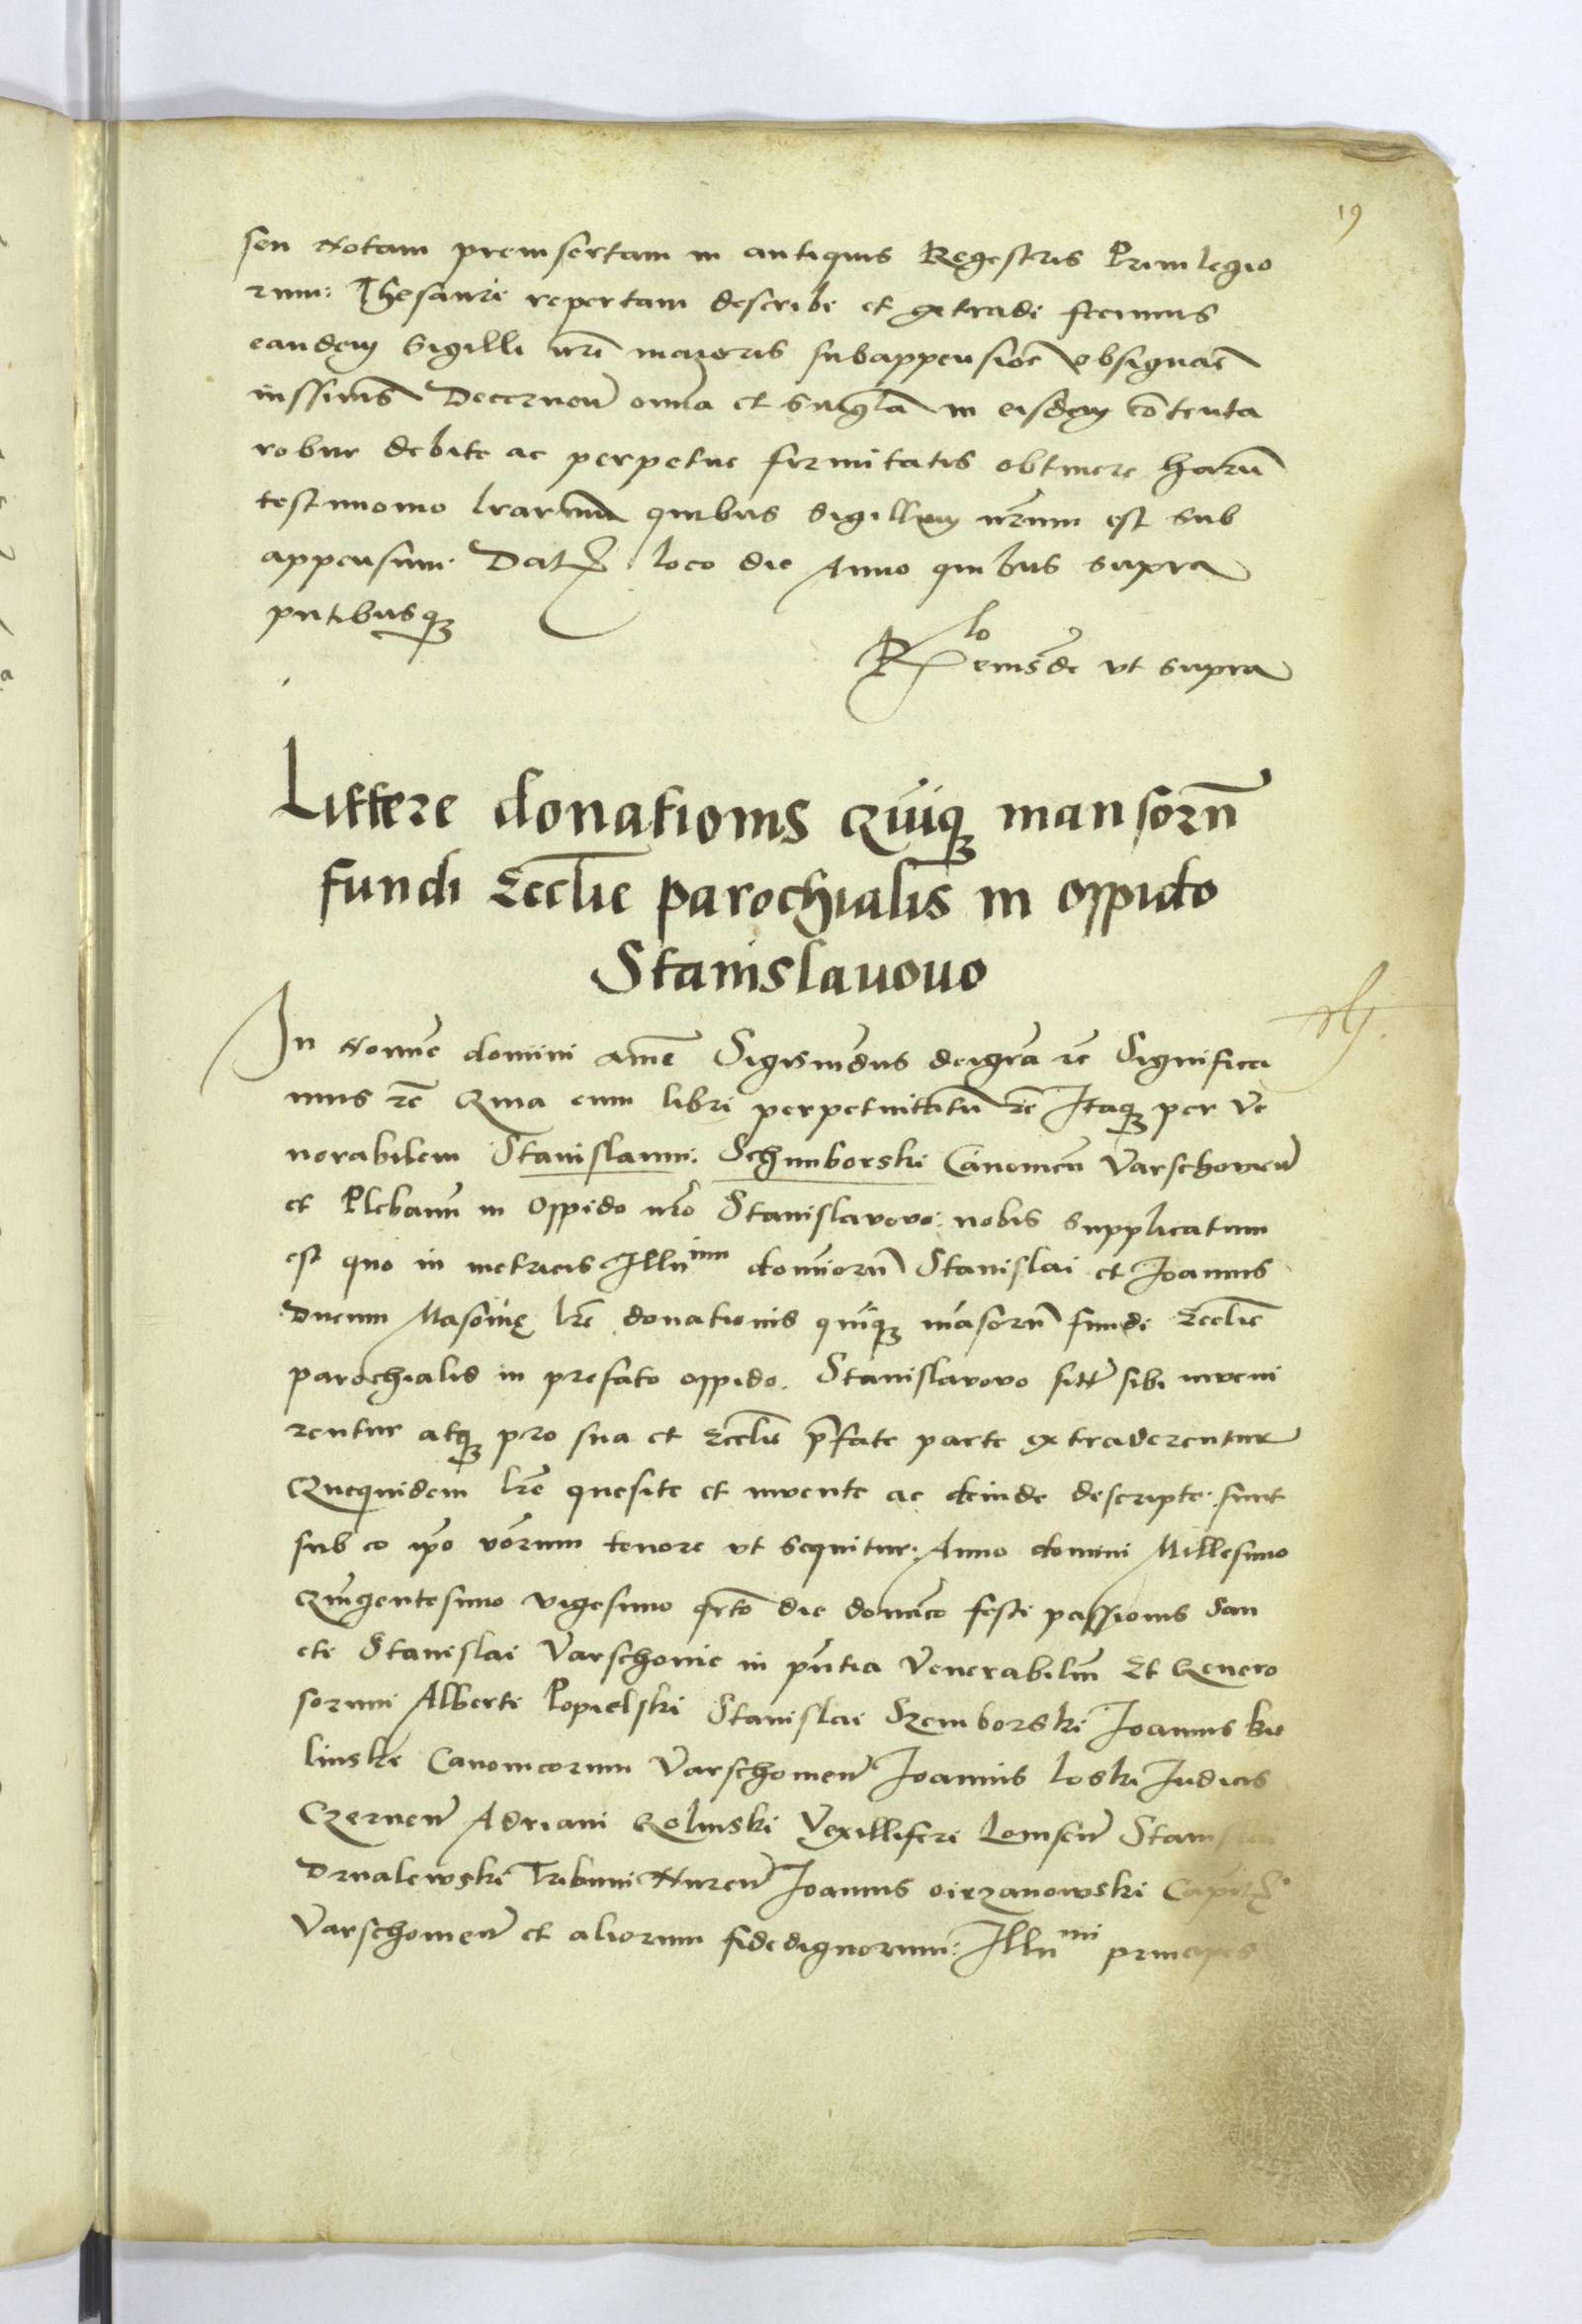 19
seu Notam preinsertam in antiquis Regestris Privilegio
rum Thesauri repertam describi et extradi fecimus
eandem Sigilli nri maioris subappensioe obsignari
iussimus Decernen omnia et singla in eisdem cotenta
robur debite ac perpetue firmitatis obtinere harū
testimonio lrarum quibus Sigillum nrum est sub
appensum Dat loco die Anno quibus supra
pntibusq
Rlo eiusde vt supra
Littere donationis Quiq mansorū
fundi Ecclie parochialis in oppido
Stanislavovo
In Nomine domini ame Sigismudus dei gra rc Significa
mus rc Quia cum libri perpetuitatū rc Itaq per Ve
nerabilem Stanislaum Schimborski Canonicū Varschovien
et Plebanū in Oppido nro Stanislavovo nobis supplicatum
est quo in metricis Illuimm dominorū Stanislai et Joannis
Ducum Masovię lre donationis quiq masorū fundi Ecclie
parochialis in prefato oppido Stanislavovo siti sibi inveni
rentur atq pro sua et Ecclie pfate parte extraderentur
Quequidem lre quesite et invente ac deinde descripte sunt
sub eo ipo verum tenore vt sequitur Anno domini Millesimo
Quingentesimo vigesimo qrto die dominco festi passionis San
cti Stanislai Varschovie in pntia Venerabiliū Et Genero
sorum Alberti Popielski Stanislai Szemborski Joannis Kie
linski Canonicorum Varschovien Joannis Loski Judicis
Czernen Adriani Golinski Vexilliferi Lomsen Stanislai
Drvalewski Tribuni Nuren Joannis oirzanowski Capit
Varschovien et aliorum fidedignorum Illumi principes